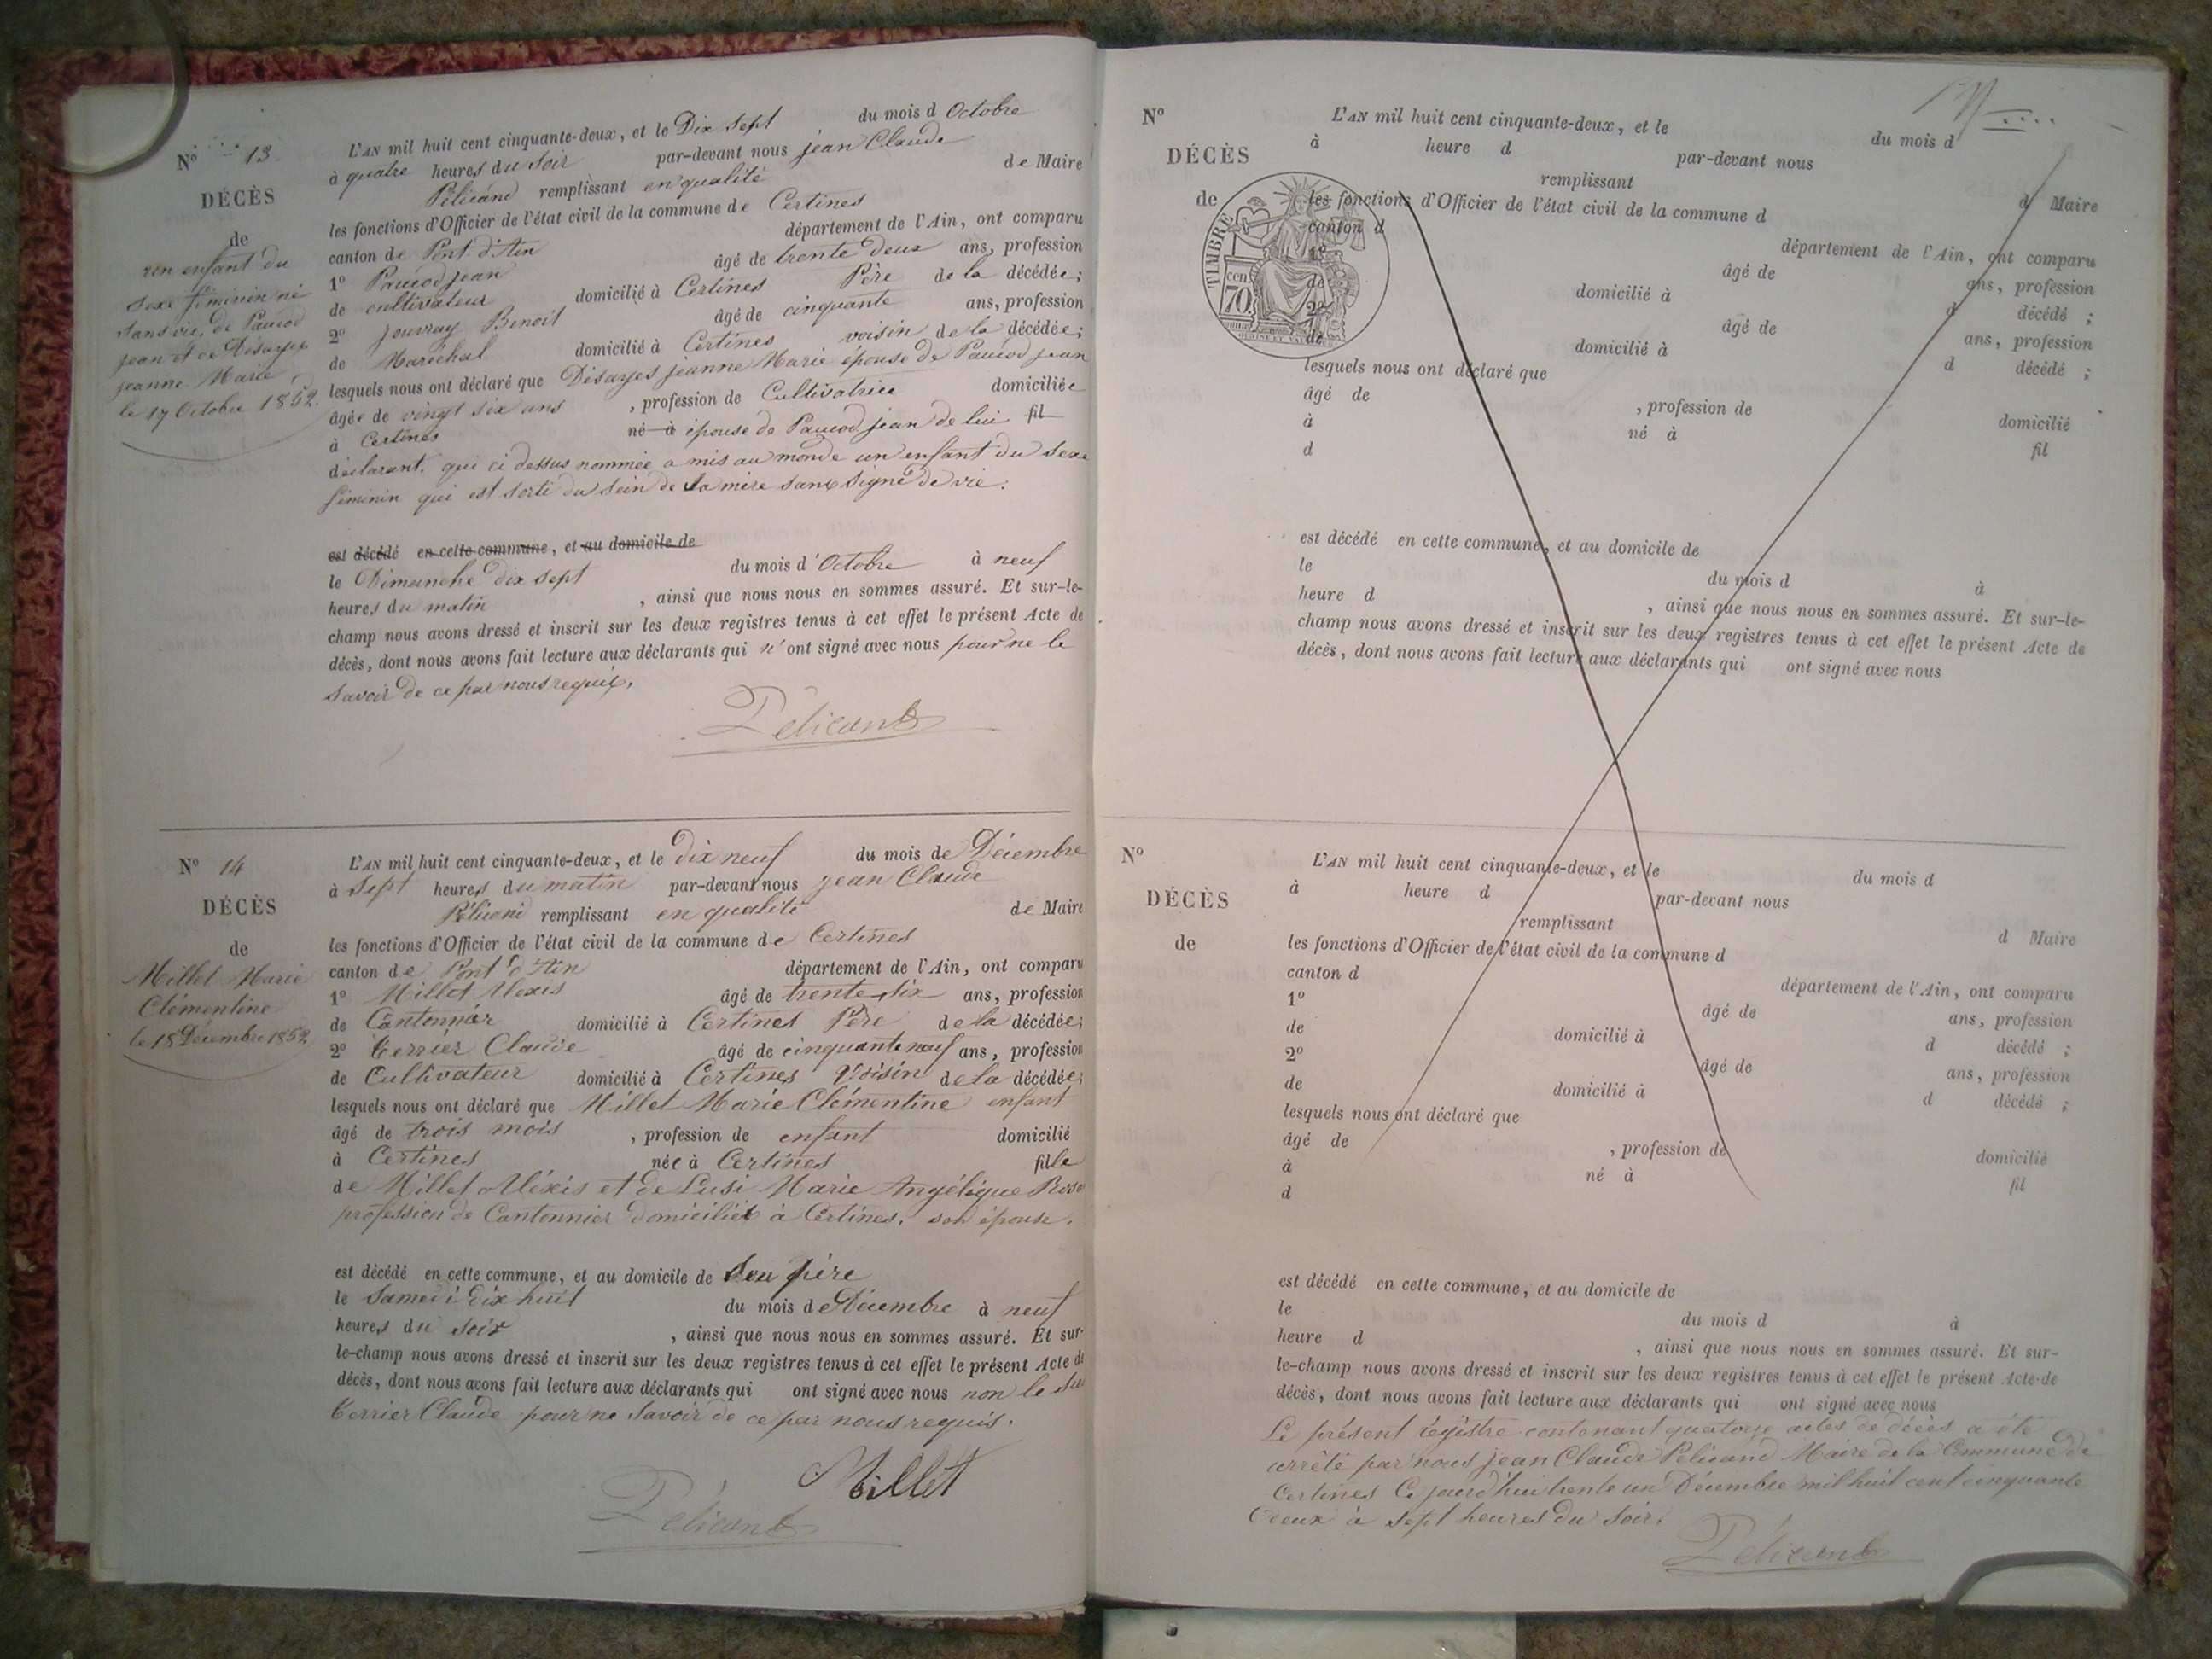 N° 13
DÉCÈS
de
un enfant du
sexe féminin né
sans vie, de Paucod
jean et de Désarges
jeanne Marie,
le 17 Octobre 1852.
L'AN mil huit cent cinquante-deux, et le Dix Sept du mois d Octobre
à quatre heures du soir par-devant nous jean Claude
Pélicand remplissant en qualité de Maire
les fonctions d'Officier de l'état civil de la commune de Certines
canton de Pont d'Ain département de l'Ain, ont comparu
1° Paucod jean âgé de trente deux ans, profession
de cultivateur domicilié à Certines Père de la décédée;
2° jouvray Benoit âgé de cinquante ans, profession
de Maréchal domicilié à Certines voisin de la décédée;
lesquels nous ont déclaré que Désarges jeanne Marie épouse de Paucod jean
âgée de vingt six ans , profession de Cultivatrice domiciliée
à Certines né à épouse de Paucod jean de lui fil
déclarant. qui ci dessus nommée a mis au monde un enfant du sexe
féminin qui est sorti du sein de sa mère sans signe de vie.
est décédé en cette commune, et au domicile de
le Dimanche dix sept du mois d'Octobre à neuf
heures du matin , ainsi que nous nous en sommes assuré. Et sur-le-
champ nous avons dressé et inscrit sur les deux registres tenus à cet effet le présent Acte de
décès, dont nous avons fait lecture aux déclarants qui n'ont signé avec nous pour ne le
savoir de ce par nous requis.
Pélicand
N° 14
DÉCÈS
de
Millet Marie
Clémentine
le 18 Décembre 1852
L'AN mil huit cent cinquante-deux, et le dix neuf du mois de Décembre
à Sept heures du matin par-devant nous jean Claude
Pélicand remplissant en qualité de Maire
les fonctions d'Officier de l'état civil de la commune de Certines
canton de Pont d'Ain département de l'Ain, ont comparu
1° Millet Alexis âgé de trente six ans, profession
de Cantonnier domicilié à Certines Père de la décédée;
2° Terrier Claude âgé de cinquante neuf ans, profession
de Cultivateur domicilié à Certines Voisin de la décédée;
lesquels nous ont déclaré que Millet Marie Clémentine enfant
âgé de trois mois , profession de enfant domicilié
à Certines née à Certines fille
de Millet Aléxis et de Lusi Marie Angélique Rose
profession de Cantonnier domiciliés à Certines, son épouse.
est décédé en cette commune, et au domicile de Son père
le Samedi dix huit du mois de Décembre à neuf
heures du soir , ainsi que nous nous en sommes assuré. Et sur-
le-champ nous avons dressé et inscrit sur les deux registres tenus à cet effet le présent Acte de
décès, dont nous avons fait lecture aux déclarants qui ont signé avec nous non le
Terrier Claude pour ne savoir de ce par nous requis.
Millet
Pélicand
N°
DÉCÈS
de
TIMBRE
70 cen.
L'AN mil huit cent cinquante-deux, et le du mois d
à heure d par-devant nous
remplissant d Maire
les fonctions d'Officier de l'état civil de la commune d
canton d département de l'Ain, ont comparu
1° âgé de ans, profession
de domicilié à d décédé ;
2° âgé de ans, profession
de domicilié à d décédé ;
lesquels nous ont déclaré que
âgé de , profession de domicilié
à né à fil
d
est décédé en cette commune, et au domicile de
le du mois d à
heure d , ainsi que nous nous en sommes assuré. Et sur-le-
champ nous avons dressé et inscrit sur les deux registres tenus à cet effet le présent Acte de
décès, dont nous avons fait lecture aux déclarants qui ont signé avec nous
N°
DÉCÈS
de
L'AN mil huit cent cinquante-deux, et le du mois d
à heure d par-devant nous
remplissant d Maire
les fonctions d'Officier de l'état civil de la commune d
canton d département de l'Ain, ont comparu
1° âgé de ans, profession
de domicilié à d décédé ;
2° âgé de ans, profession
de domicilié à d décédé ;
lesquels nous ont déclaré que
âgé de , profession de domicilié
à né à fil
d
est décédé en cette commune, et au domicile de
le du mois d à
heure d , ainsi que nous nous en sommes assuré. Et sur-
le-champ nous avons dressé et inscrit sur les deux registres tenus à cet effet le présent Acte de
décès, dont nous avons fait lecture aux déclarants qui ont signé avec nous
Le présent registre contenant quatorze actes de décès a été
arrêté par nous jean Claude Pélicand Maire de la Commune de
Certines Ce jourd'hui trente un Décembre mil huit cent cinquante
Deux à sept heures du soir.
Pélicand